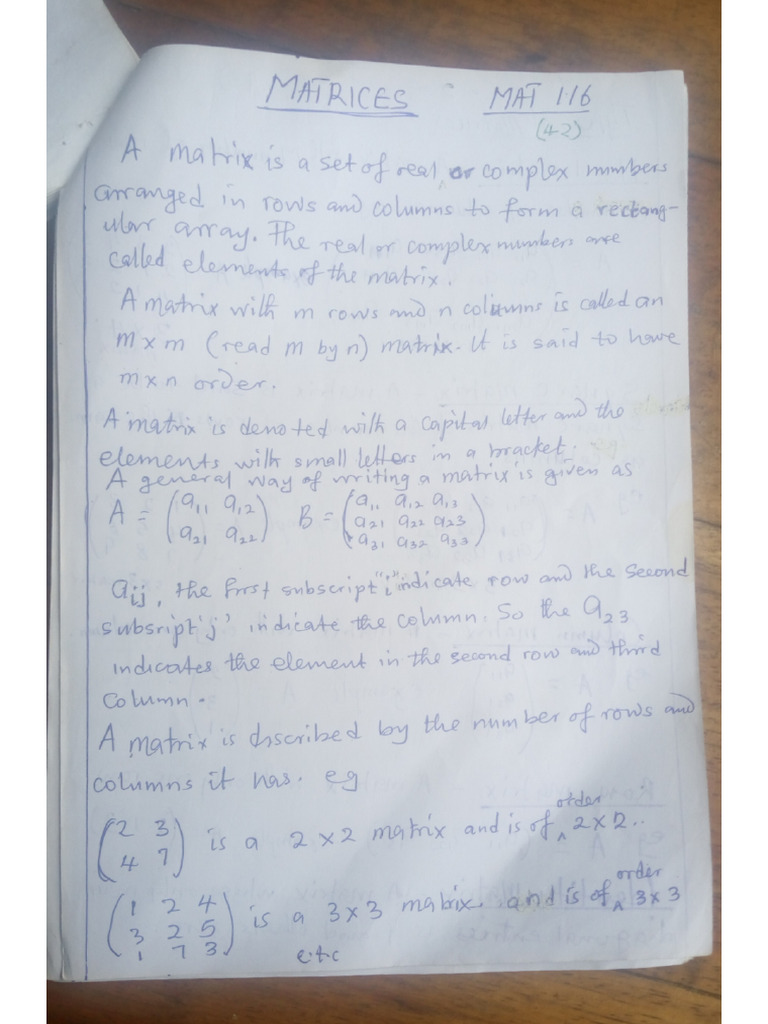 MATRICES MAT 116
(42)
A matrix is a set of real or complex numbers
arranged in rows and columns to form a rectang-
ular array. The real or complex numbers are
called elements of the matrix.
A matrix with m rows and n columns is called an
m x m (read m by n) matrix. It is said to have
m x n order.
A matrix is denoted with a capital letter and the
elements with small letters in a bracket.
A general way of writing a matrix is given as
A = (a₁₁ a₁₂ B = (a₁₁ a₁₂ a₁₃
a₂₁ a₂₂) a₂₁ a₂₂ a₂₃
a₃₁ a₃₂ a₃₃)
aij, the first subscript "i" indicate row and the second
subsript 'j' indicate the column. So the a₂₃
indicates the element in the second row and third
column.
A matrix is dscribed by the number of rows and
columns it has. eg
order
(2 3 is a 2 x 2 matrix and is of ^ 2 x 2..
4 7)
order
(1 2 4 is a 3 x 3 matrix. and is of ^ 3 x 3
3 2 5
1 7 3)
e.t.c